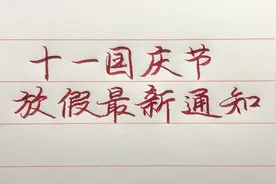 十一国庆节
放假最新通知